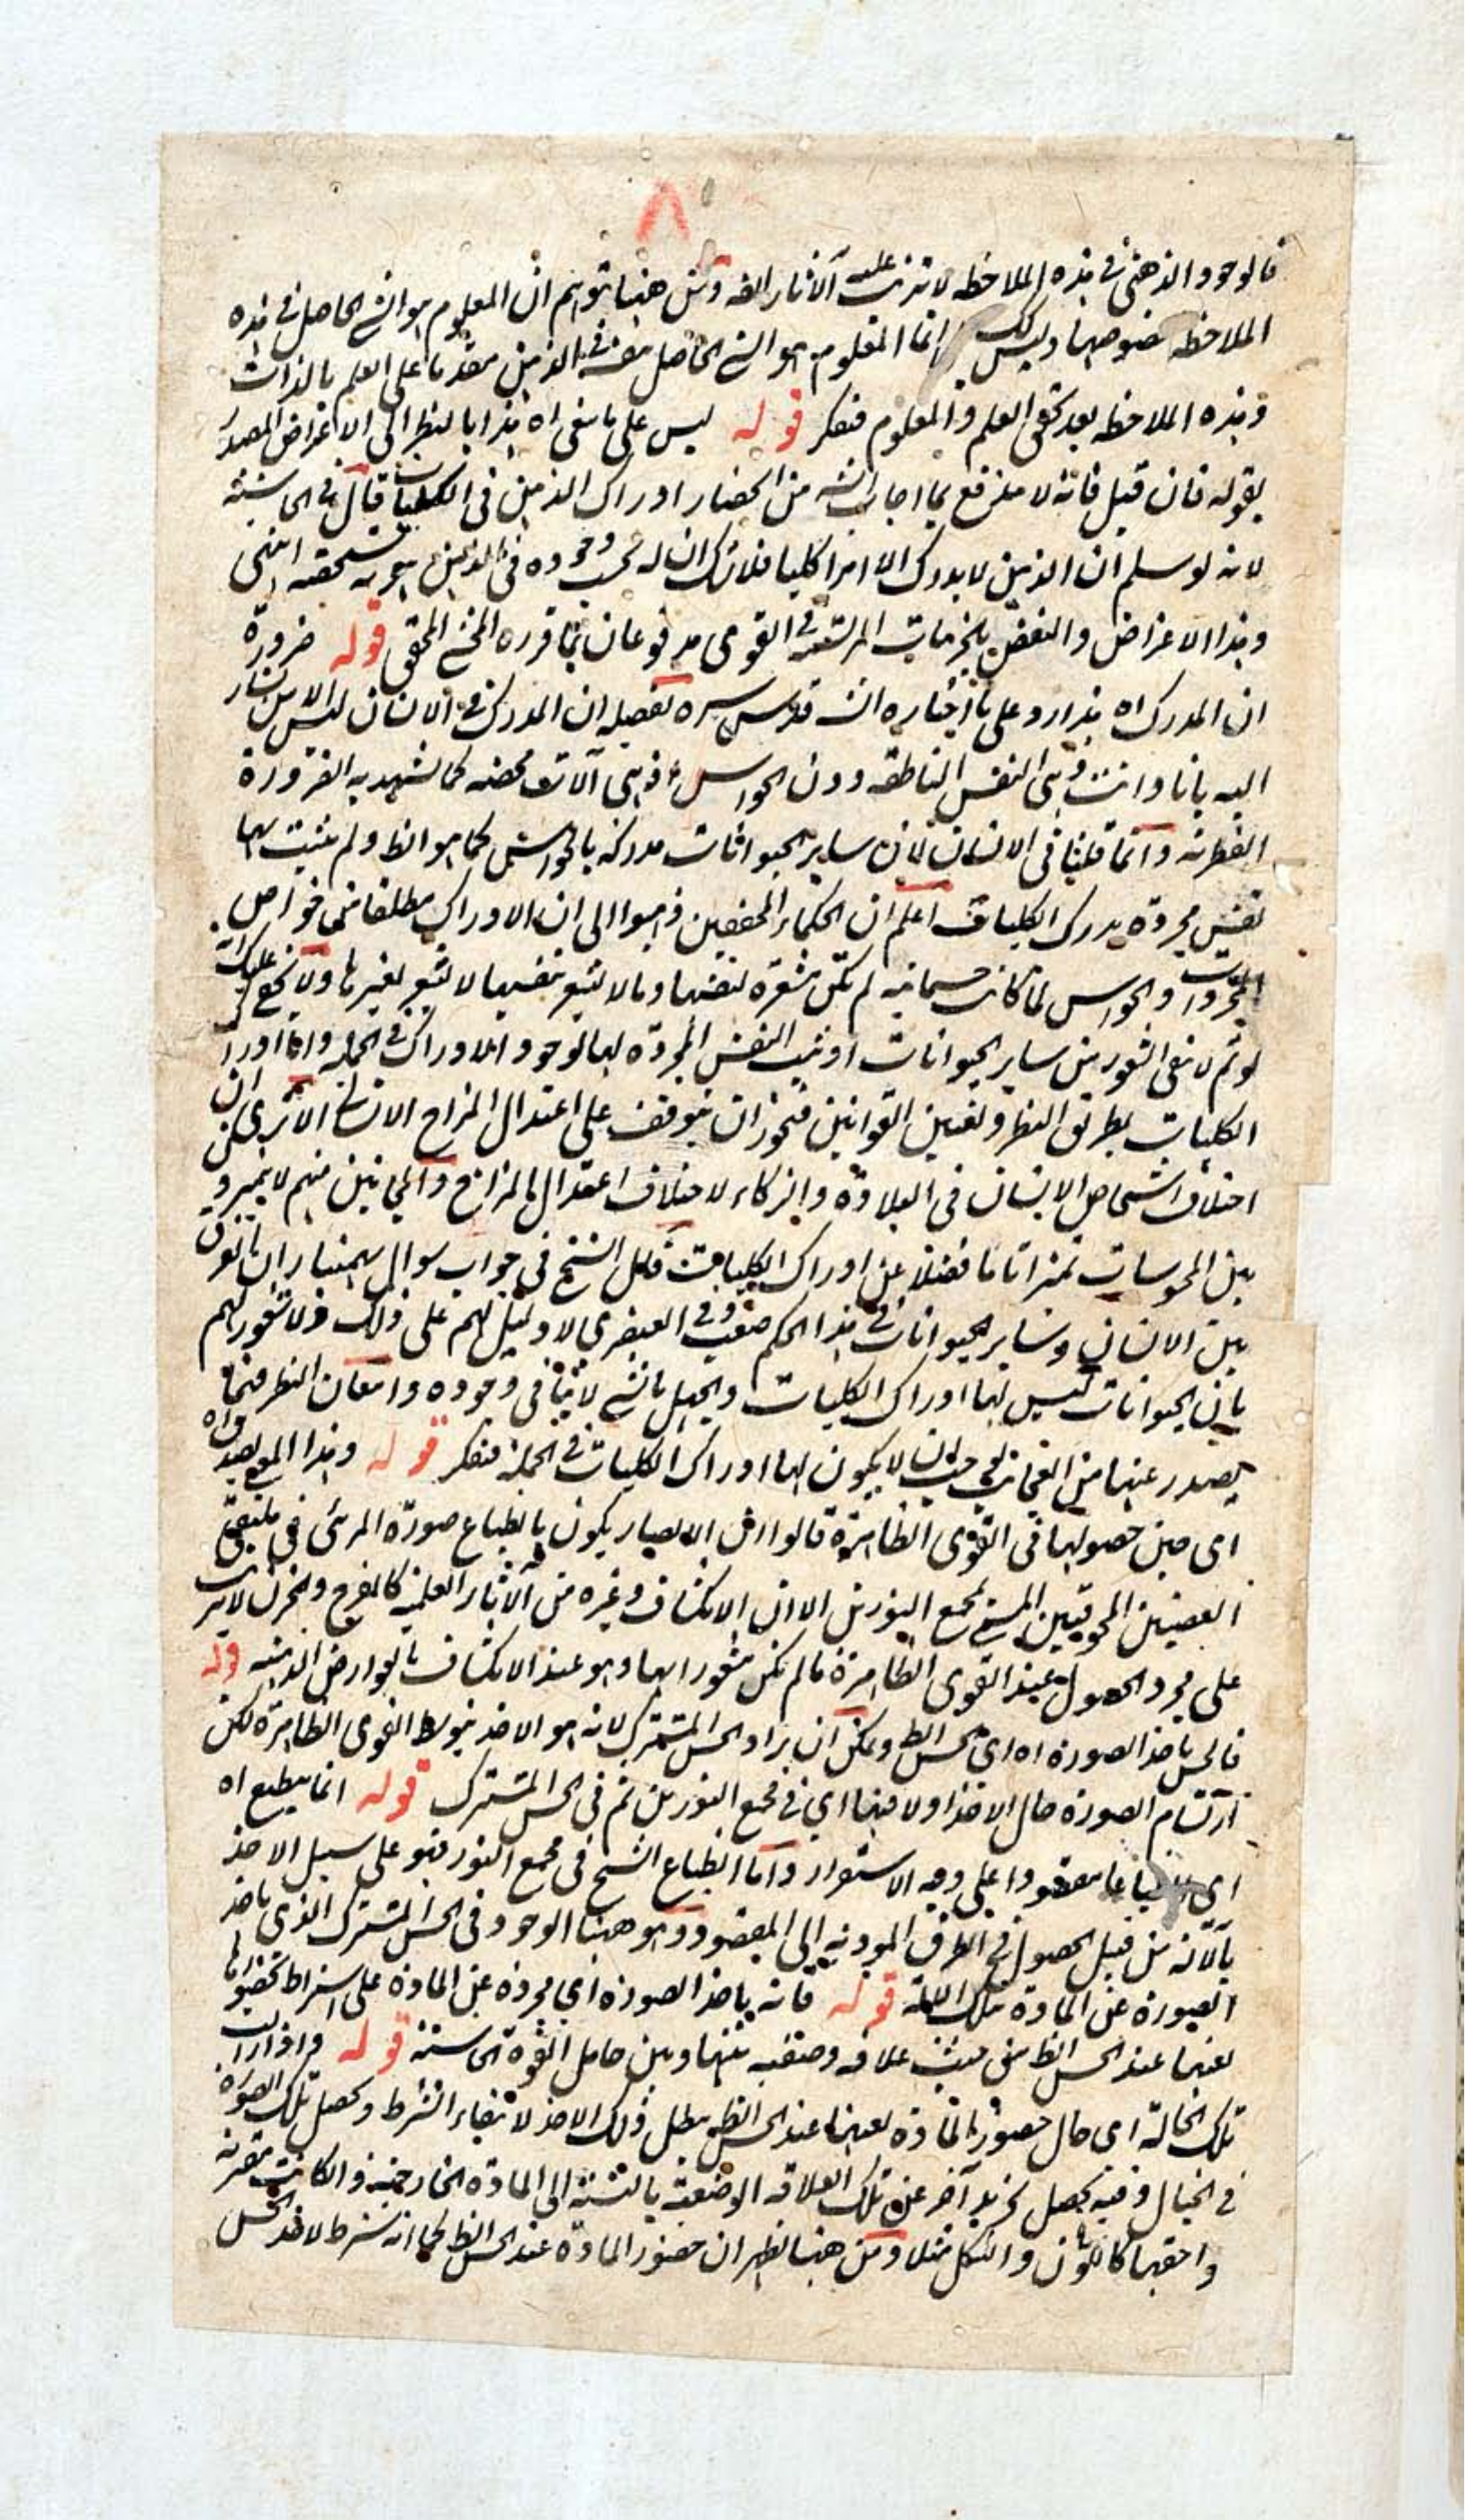 ٨
فالوجود الذهني في هذه الملاحظه لا تترتب عليه الآثار الخ ومن ههنا توهم ان المعلوم هو الشي الحاصل في هذه
الملاحظه بخصوصها وليس كك انما المعلوم هو الشي الحاصل في الذهن مقدما على العلم بالذات
وهذه الملاحظه بعد تحقق العلم والمعلوم فتفكر قوله ليس على ما ينبغي اه هذا بالنظر الى الاعتراض المصدر
بقوله فان قيل فانه لا يندفع بما اجاب الش من انحصار ادراك الذهن في الكليات قال في الحاشيته
لانه لو سلم ان الذهن لا يدرك الا امرا كليا فلا شك ان له بحسب وجوده في الذهن هويه متشخصه انتهى
وهذا الاعتراض والنقض بالجزئيات المرتسمه في القوى مدفوعان بما قرره المحشي المحقق قوله ضرورة
ان المدرك اه هذا رد على ما اختاره الش قدس سره تفصيله ان المدرك في الانسان ليس الا من يشار
اليه بانا وانت وهي النفس الناطقه دون الحواس اذ هي آلات محضه كما تشهد به الضرورة
الفطرية وانما قلنا في الانسان لان ساير الحيوانات مدركه بالحواس كما هو الظ ولم تثبت لها
نفس مجرده يدرك الكليات اعلم ان الحكماء المحققين ذهبوا الى ان الادراك مطلقا من خواص
المجردات والحواس لما كانت جسمانيه لم تكن مشعره لنفسها وما لا يشعر بنفسها لا يشعر لغيرها ولا يخفى عليك انه
لو تم لانتفى الشعور من ساير الحيوانات او ثبت النفس المجرده لها لوجود الادراك في الجمله واما ادراك
الكليات بطريق النظر وتعيين القوانين فيجوز ان يتوقف على اعتدال المزاج الانساني الا ترى ان
اختلاف اشخاص الانسان في البلادة والذكاء لاختلاف اعتدال المزاج والمجانين منهم لا يميزون
بين المحسوسات تميزا تاما فضلا عن ادراك الكليات قال الشيخ في جواب سوال بهمنيار ان الفرق
بين الانسان وساير الحيوانات في هذا الحكم صعب وفي القيصري لا دليل لهم على ذلك ولا شعور لهم
بان الحيوانات ليس لها ادراك الكليات والجهل بالشي لا ينافي وجوده وامعان النظر فيما
يصدر عنها من العجايب يوجب ان يكون لها ادراك الكليات في الجمله فتفكر قوله وهذا المعنى بعيد اه
اى حين حصولها في القوى الظاهرة قالوا ان الابصار يكون بانطباع صورة المرئي في ملتقى
العصبتين المجوفتين المسمى بمجمع النورين الا ان الانكشاف وغيره من الآثار العلمية كالفرح والحزن لا يترتب
على مجرد الحصول عند القوى الظاهرة ما لم تكن مشعورا بها وهو عند الانكشاف بالعوارض الذهنيه قوله
فالحس ياخذ الصورة اه اى الحس الظ ويمكن ان يراد الحس المشترك لانه هو الاخذ بتوسط القوى الظاهرة لكن
ارتسام الصورة حال الاخذ اولا فيها اى في مجمع النورين ثم في الحس المشترك قوله انما ينطبع اه
اى انطباعا مقصودا على وجه الاستقرار واما انطباع الشبح في مجمع النور فهو على سبيل الاخذ
بالآلة من قبيل الحصول في الطرق المودية الى المقصود وهو ههنا الوجود في الحس المشترك الذي ياخذ
الصورة عن المادة بتلك الآلة قوله فانه ياخذ الصورة اى مجردة عن المادة على اشتراط حضورها
بعينها عند الحس الظ من حيث علاقه وضعيه بينها وبين حامل القوة الحاسته قوله واذا زالت
تلك الحالة اى حال حضور المادة بعينها عند الحس الظ يبطل ذلك الاخذ لانتفاء الشرط وتحصل تلك الصورة
في الخيال وفيه يحصل تجريد آخر عن تلك العلاقه الوضعية بالنسبة الى المادة الخارجية وان كانت مقترنة
واحقها كاللون والشكل مثلا ومن ههنا يظهر ان حضور المادة عند الحس الظ كما انه شرط لاخذ الحس